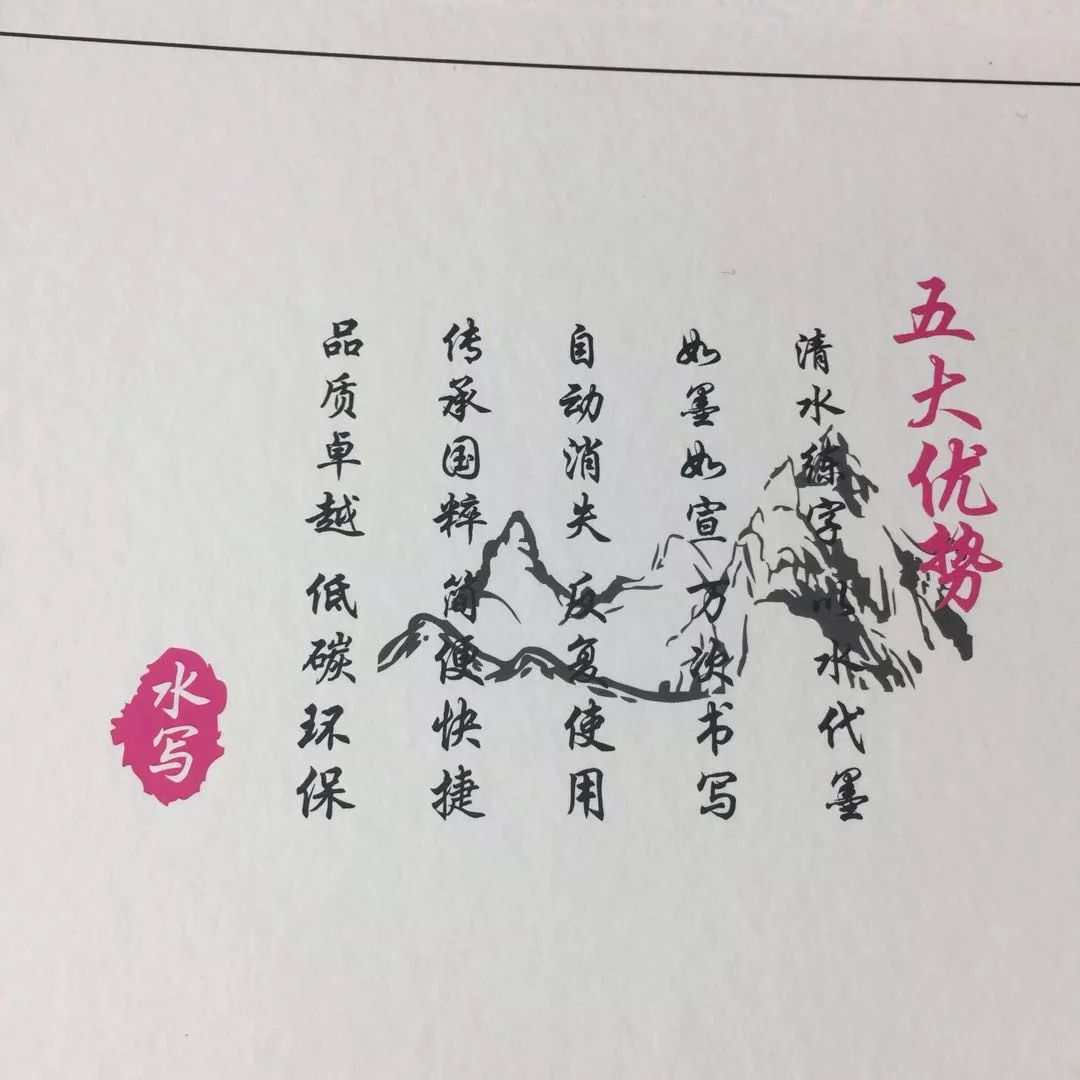 五大优势
清水练字 以水代墨
如墨如宣 方诀书写
自动消失 反复使用
传承国粹 简便快捷
品质卓越 低碳环保
水写